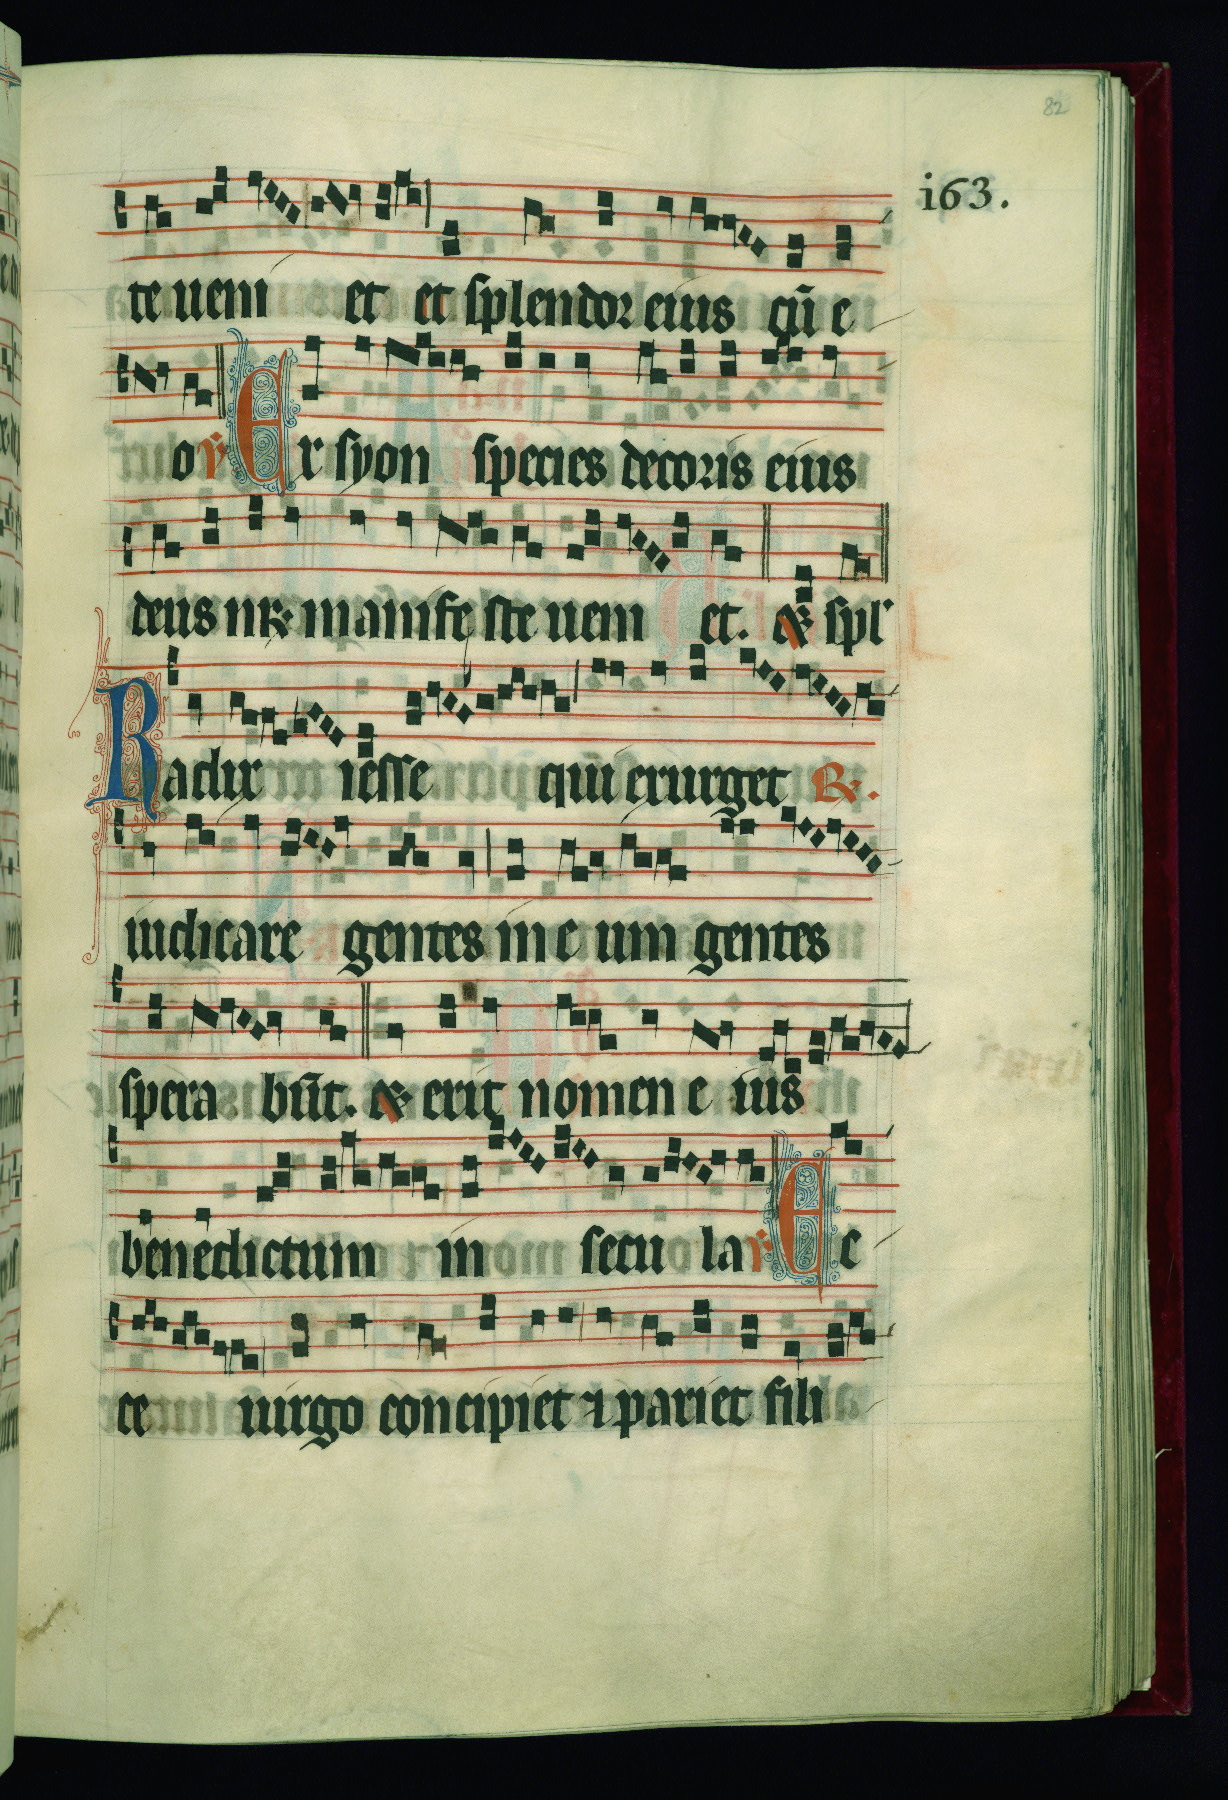 82
i63.
te ueni et et splendor eius cū e
o ℣ Ex syon species decoris eius
deus nr̄ manife ste ueni et. et spl'
Radix iesse qui exurget ℟.
iudicare gentes in e um gentes
spera būt. et erit nomen e ius
benedictum in secu la ℣ Ec
ce uirgo concipiet ⁊ pariet fili